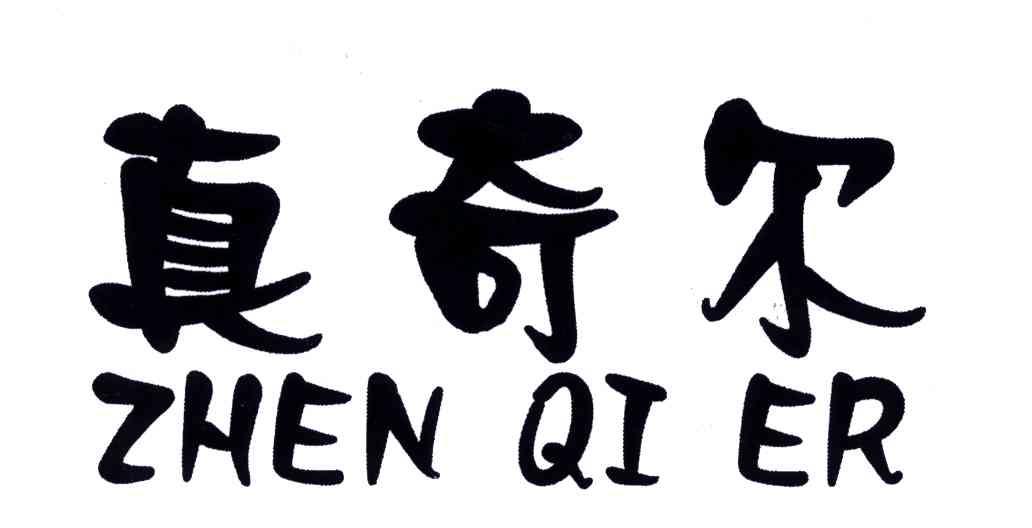 真奇尔
ZHEN QI ER